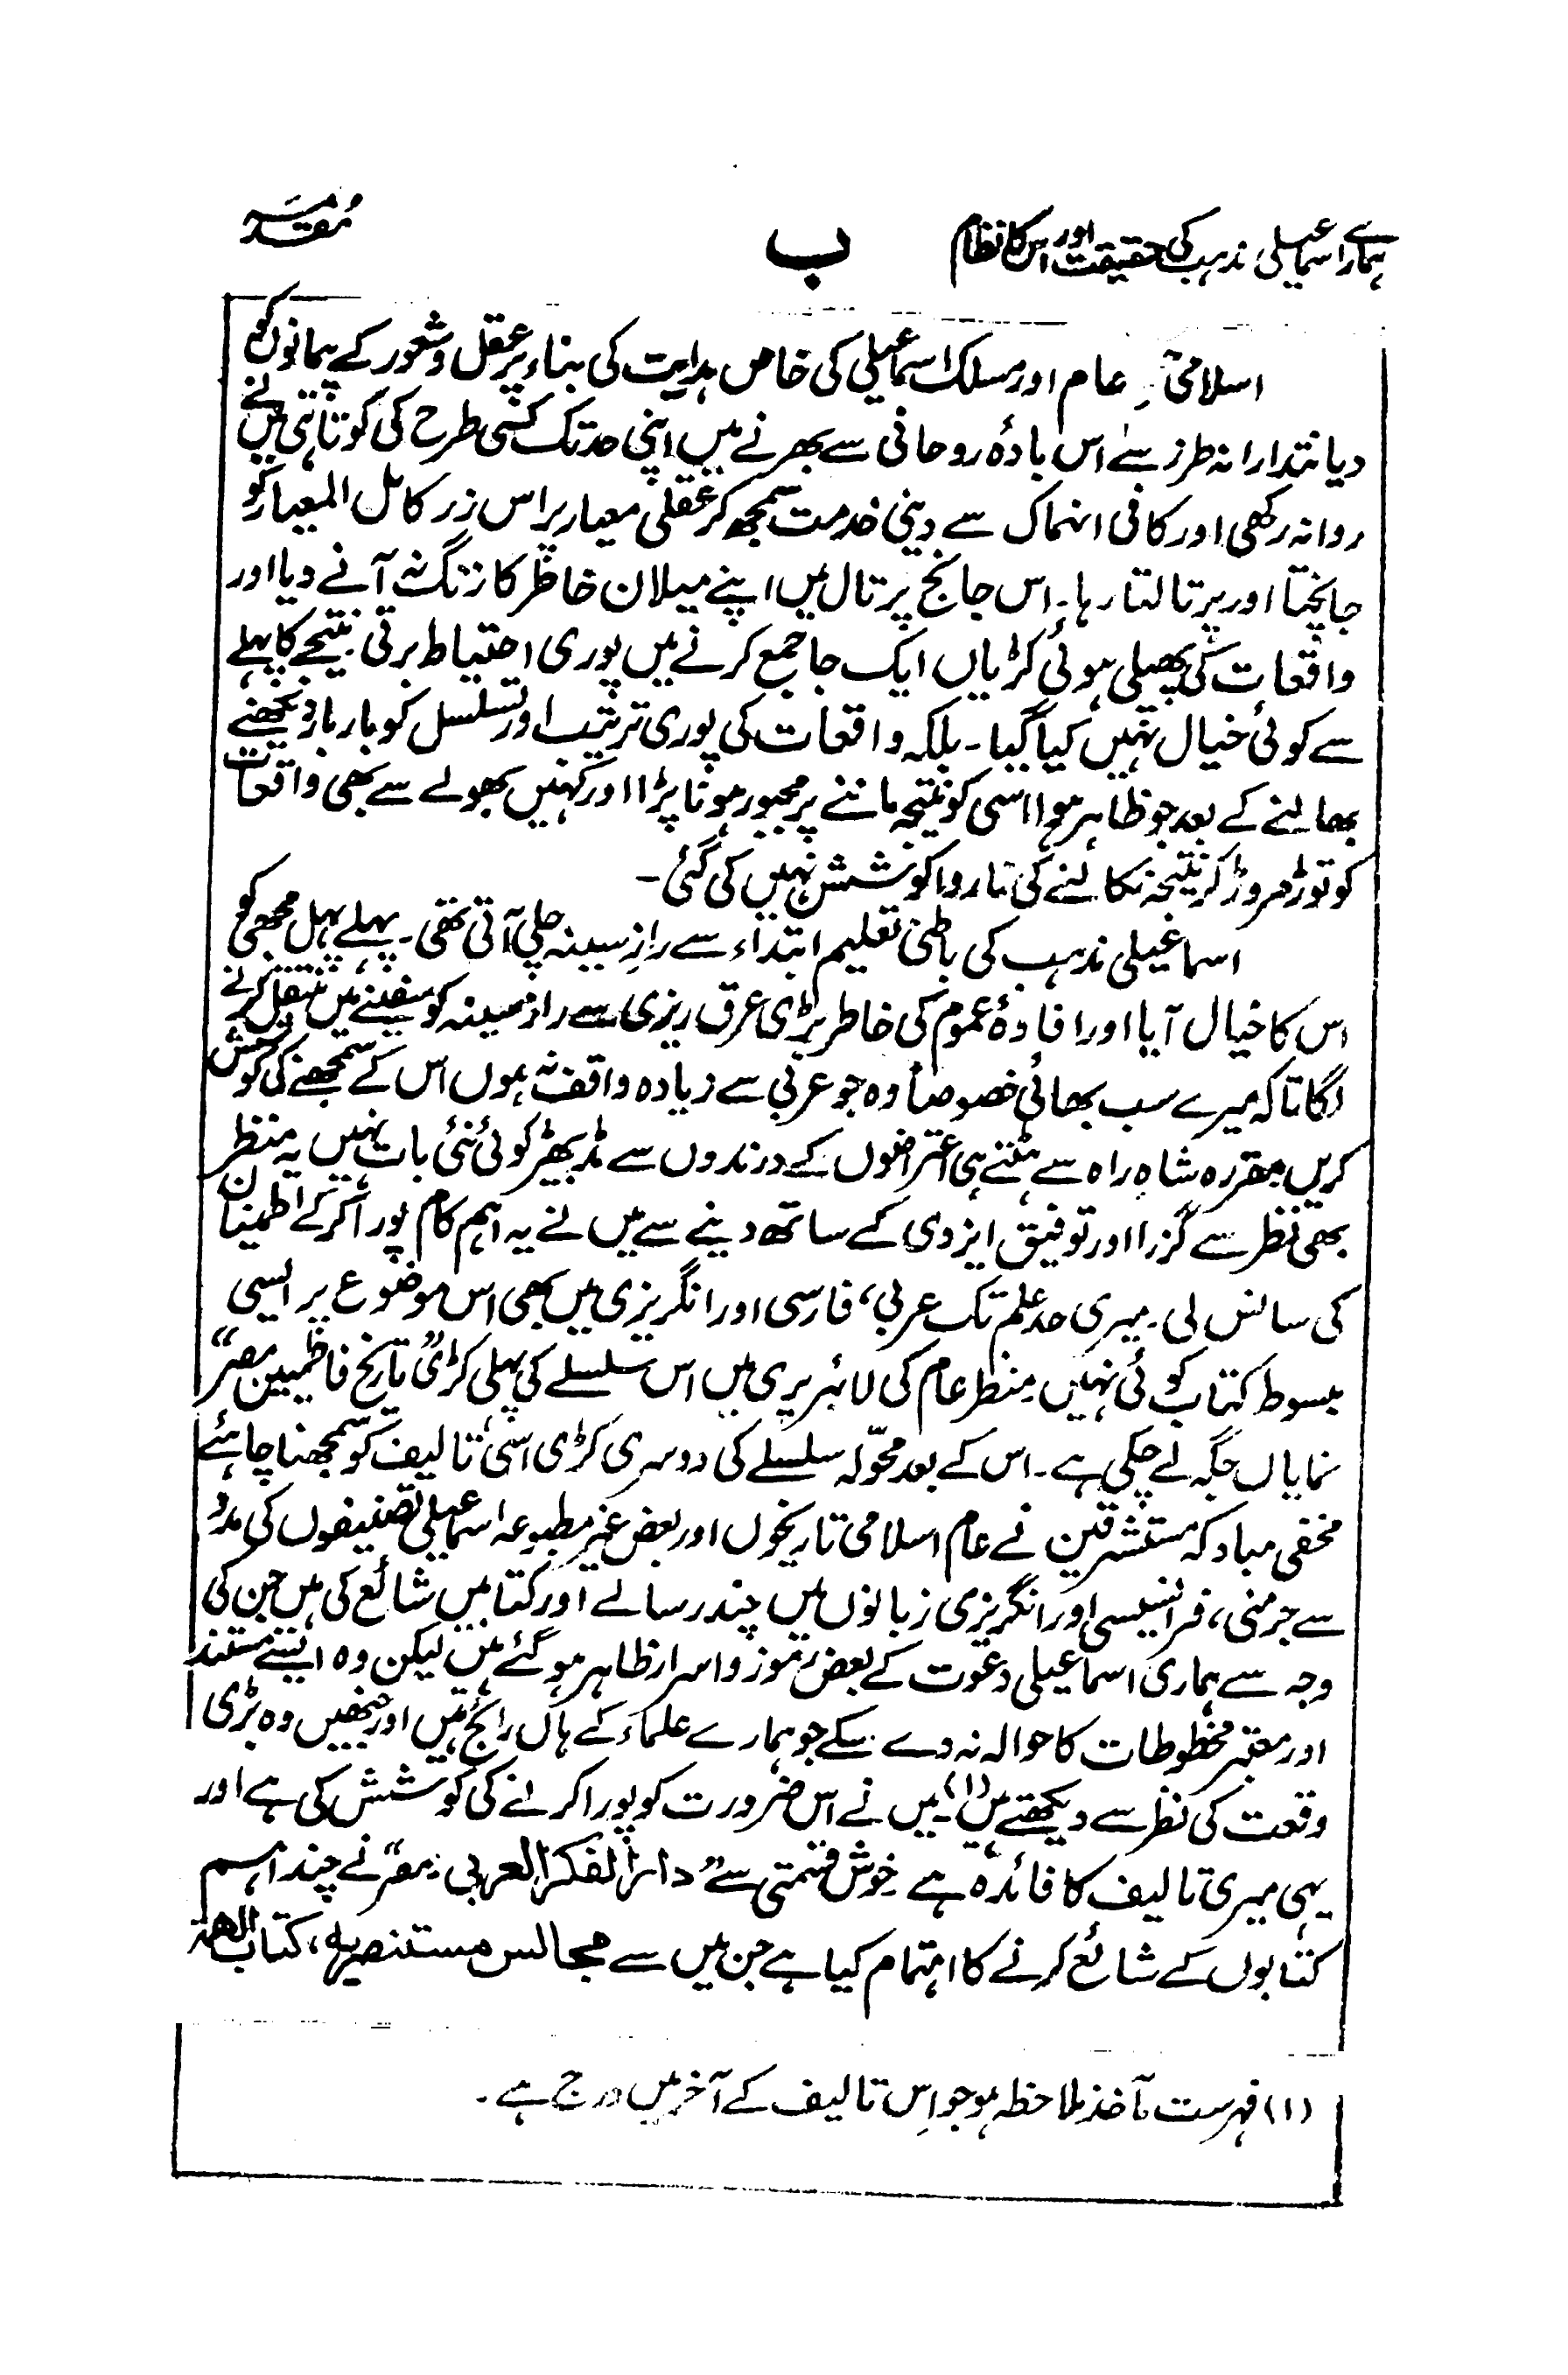 ہمارے اسماعیلی مذہب کی حقیقت اور اس کا نظام
ب
مُقدمہ
اسلامی عام اور مسلک اسماعیلی کی خاص ہدایت کی بناء پر عقل و شعور کے پیمانوں کو
دیانتدارانہ طرز سے اس بادۂ روحانی سے بھرنے میں اپنی حد تک کسی طرح کی کوتاہی میں نے
روا نہ رکھی اور کافی انہماک سے دینی خدمت سمجھ کر عقلی معیار پر اس زر کامل المعیار کو
جانچتا اور پرتالتا رہا۔ اس جانچ پرتال میں اپنے میلان خاطر کا رنگ نہ آنے دیا اور
واقعات کی پھیلی ہوئی کڑیاں ایک جا جمع کرنے میں پوری احتیاط برتی نتیجے کا پہلے
سے کوئی خیال نہیں کیا گیا۔ بلکہ واقعات کی پوری ترتیب اور تسلسل کو بار بار دیکھنے
بھالنے کے بعد جو ظاہر ہوا اسی کو نتیجہ ماننے پر مجبور ہونا پڑا اور کہیں بھولے سے بھی واقعات
کو توڑ مروڑ کر نتیجہ نکالنے کی ناروا کوشش نہیں کی گئی۔
اسماعیلی مذہب کی باطنی تعلیم ابتداء سے رازِ سینہ چلی آتی تھی۔ پہلے پہل مجھی کو
اس کا خیال آیا اور افادۂ عموم کی خاطر بڑی عرق ریزی سے راز سینہ کو سفینے میں منتقل کرنے
لگا تاکہ میرے سب بھائی خصوصاً وہ جو عربی سے زیادہ واقف نہ ہوں اس کے سمجھنے کی کوشش
کریں مقررہ شاہِ راہ سے ہٹتے ہی اعتراضوں کے درندوں سے مڈبھیڑ کوئی نئی بات نہیں یہ منظر
بھی نظر سے گزرا اور توفیق ایزدی کے ساتھ دینے سے میں نے یہ اہم کام پورا کرکے اطمینان
کی سانس لی۔ میری حد علم تک عربی، فارسی اور انگریزی میں بھی اس موضوع پر ایسی
مبسوط کتاب کوئی نہیں۔ منظر عام کی لائبریری میں اس سلسلے کی پہلی کڑی "تاریخ فاطمیین مصر"
نمایاں جگہ لے چکی ہے۔ اس کے بعد محوّلہ سلسلے کی دوسری کڑی اسی تالیف کو سمجھنا چاہئے
مخفی مباد کہ مستشرقین نے عام اسلامی تاریخوں اور بعض غیر مطبوعہ اسماعیلی تصنیفوں کی مدد
سے جرمنی، فرانسیسی اور انگریزی زبانوں میں چند رسالے اور کتابیں شائع کی ہیں جن کی
وجہ سے ہماری اسماعیلی دعوت کے بعض رموز و اسرار ظاہر ہو گئے ہیں لیکن وہ ایسے مستند
اور معتبر مخطوطات کا حوالہ نہ دے سکے جو ہمارے علماء کے ہاں رائج ہیں اور جنھیں وہ بڑی
وقعت کی نظر سے دیکھتے ہیں (۱)۔ میں نے اس ضرورت کو پورا کرنے کی کوشش کی ہے اور
یہی میری تالیف کا فائدہ ہے خوش قسمتی سے "دار الفکر العربی۔ مصر" نے چند اہم
کتابوں کے شائع کرنے کا اہتمام کیا ہے جن میں سے مجالس مستنصریہ، کتاب الھمۃ
(۱) فہرست مآخذ ملاحظہ ہو جو اِس تالیف کے آخر میں درج ہے۔